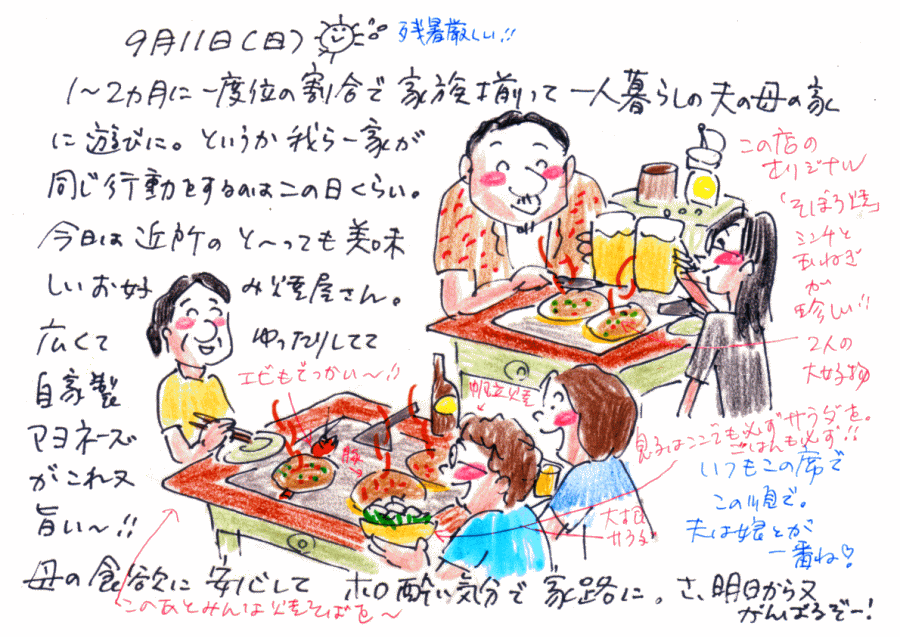 9月11日(日)
残暑厳しい!!
1〜2カ月に一度位の割合で家族揃って一人暮らしの夫の母の家
に遊びに。というか我ら一家が
同じ行動をするのはこの日くらい。
今日は近所のと〜っても美味
しいお好み焼屋さん。
広くてゆったりしてて
自家製
マヨネーズ
がこれ又
旨い〜!!
母の食欲に安心してホロ酔い気分で家路に。さ、明日から又
がんばるぞー!
この店の
オリジナル
「そぼろ焼」
ミンチと
玉ねぎ
が
珍しい!!
2人の
大好物
エビもでっかい〜!!
帆立焼
豚
大根
サラダ
息子はここでも必ずサラダを。
ごはんも必ず!!
いつもこの席で
この順で。
夫は娘とが
一番ね♡
このあとみんな焼そばを〜